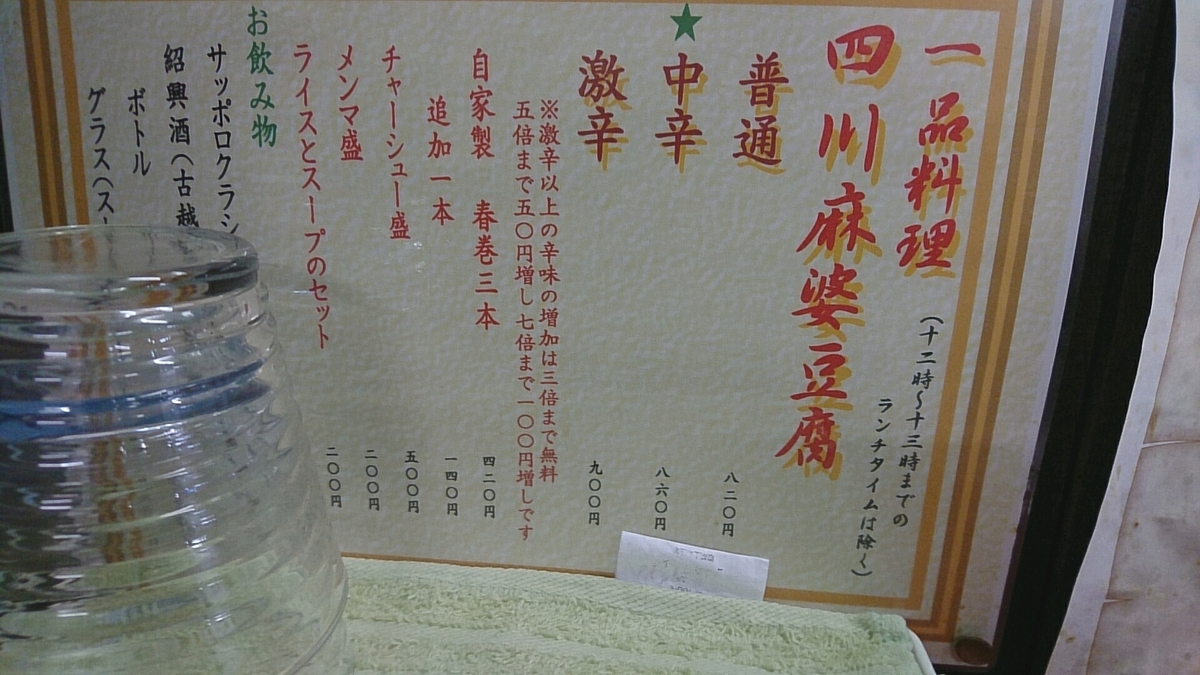 一品料理
(十二時〜十三時までの
ランチタイムは除く)
四川麻婆豆腐
普通 八二〇円
★中辛 八六〇円
激辛 九〇〇円
※激辛以上の辛味の増加は三倍まで無料
五倍まで五〇円増し七倍まで一〇〇円増しです
自家製 春巻三本 四二〇円
追加一本 一四〇円
チャーシュー盛 五〇〇円
メンマ盛 二〇〇円
ライスとスープのセット 二〇〇円
お飲み物
サッポロクラシ
紹興酒(古越
ボトル
グラス(ス